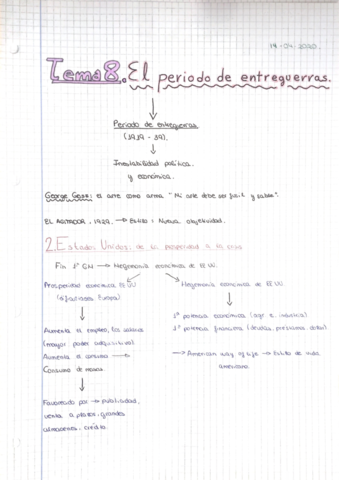 14-04-2020
Tema 8. El periodo de entreguerras.
Periodo de entreguerras
(1919-39).
Inestabilidad política
y económica.
George Gosz: el arte como arma "Mi arte debe ser fusil y sable".
EL AGITADOR, 1928. → Estilo: Nueva objetividad.
2. Estados Unidos: de la prosperidad a la crisis
Fin 1ª GM → Hegemonía económica de EE UU
Prosperidad económica EE UU
Hegemonía económica de EE UU.
Europa)
1ª potencia económica (agr. e industria)
Aumenta el empleo, los salarios
1ª potencia financiera (deudas, préstamos, dólar)
(mayor poder adquisitivo)
Aumenta el consumo →
→ American way of life → Estilo de vida
Consumo de masas.
americano.
Favorecido por → publicidad,
venta a plazos, grandes
almacenes, crédito.